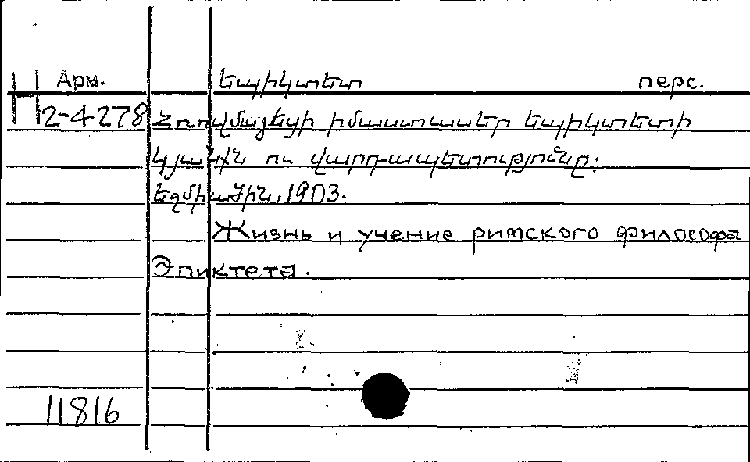 Арм. Եպիկտետ перс.
H2-4278 Հռովմայեցի իմաստասէր Եպիկտետի
կյանքն ու վարդապետությունը:
Եզմիածին, 1903.
Жизнь и учение римского философа
Эпиктета.
11816